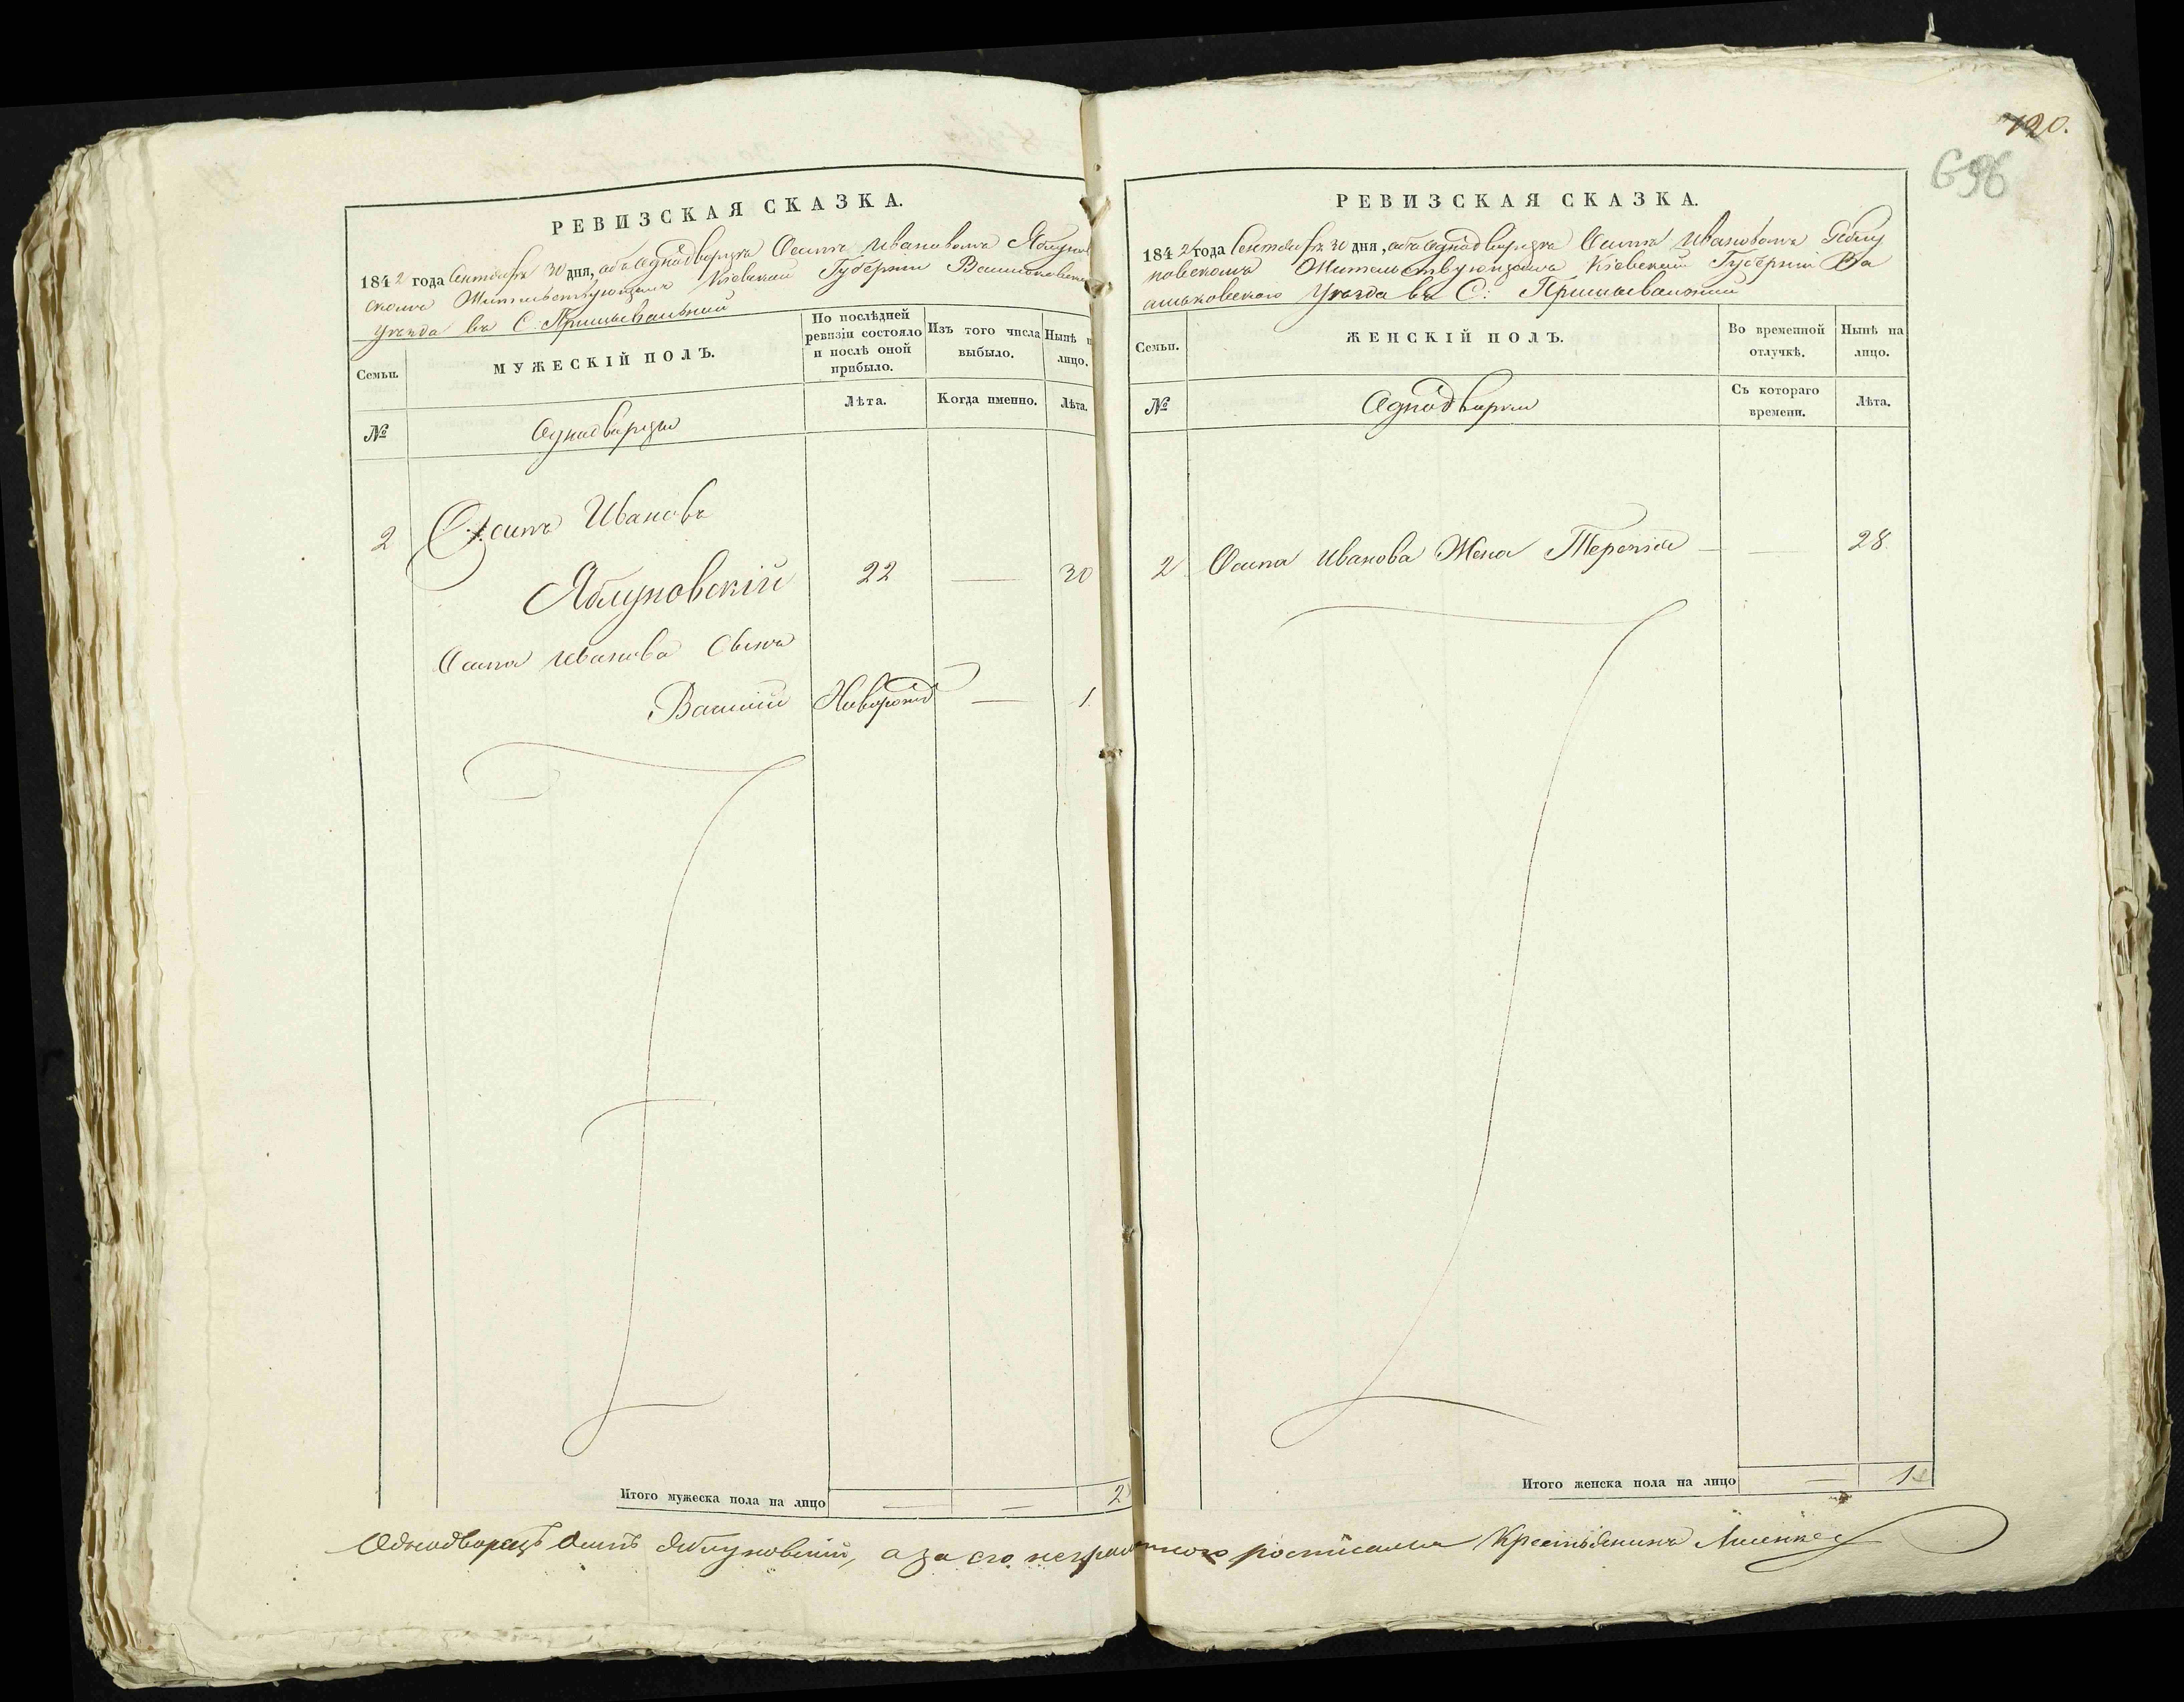 РЕВИЗСКАЯ СКАЗКА.
1842 года Сентября 30 дня, объ однодворцѣ Осипѣ Ивановомъ Яблунов
скомъ Жительствующемъ Кіевской Губерніи Васильковска
Уѣзда въ С.
Семьи.
МУЖЕСКІЙ ПОЛЪ.
По послѣдней ревизіи состояло и послѣ оной прибыло.
Изъ того числа выбыло.
Нынѣ н
лицо.
№
Однодворцы
Лѣта.
Когда именно.
Лѣта.
2
Осипъ Ивановъ
Яблуновскій 22 — 30
Осипа Иванова Сынъ
Василій Новорожд — 1
Итого мужеска пола на лицо — — 2
120.
696
РЕВИЗСКАЯ СКАЗКА.
1842 года Сентября 30 дня, объ однодворцѣ Осипѣ Ивановомъ Яблу
новскомъ Жительствующомъ Кіевской Губерніи Ва
сильковского Уѣзда въ С:
Семьи.
ЖЕНСКІЙ ПОЛЪ.
Во временной отлучкѣ.
Нынѣ на лицо.
№
Однодворки
Съ котораго времени.
Лѣта.
2 Осипа Иванова Жена Терезія — — 28
Итого женска пола на лицо — 1
Однодворецъ Осипъ Яблуновскій, а за его неграмотного росписался Крестьянинъ